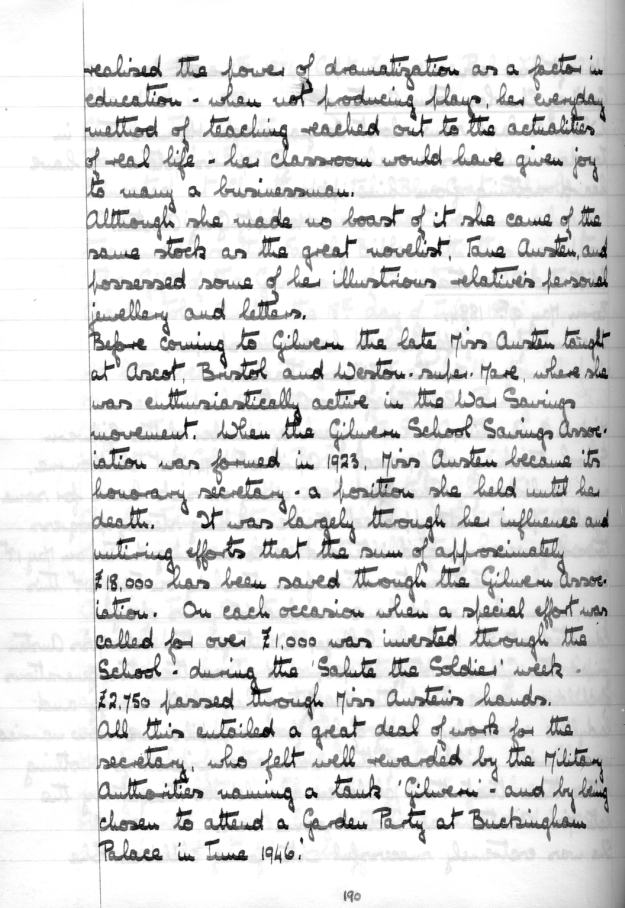 realised the power of dramatization as a factor in
education - when not producing plays, her everyday
method of teaching reached out to the actualities
of real life - her classroom would have given joy
to many a businessman.
Although she made no boast of it she came of the
same stock as the great novelist, Jane Austen, and
possessed some of her illustrious relative's personal
jewellery and letters.
Before coming to Gilwern the late Miss Austen taught
at Ascot, Bristol and Weston-super-Mare, where she
was enthusiastically active in the War Savings
movement. When the Gilwern School Savings Assoc-
iation was formed in 1923, Miss Austen became its
honorary secretary - a position she held until her
death. It was largely through her influence and
untiring efforts that the sum of approximately
£18,000 has been saved through the Gilwern Assoc-
iation. On each occasion when a special effort was
called for over £1,000 was invested through the
School - during the 'Salute the Soldier' week -
£2,750 passed through Miss Austen's hands.
All this entailed a great deal of work for the
secretary, who felt well rewarded by the Military
Authorities naming a tank 'Gilwern' - and by being
chosen to attend a Garden Party at Buckingham
Palace in June 1946.'
190